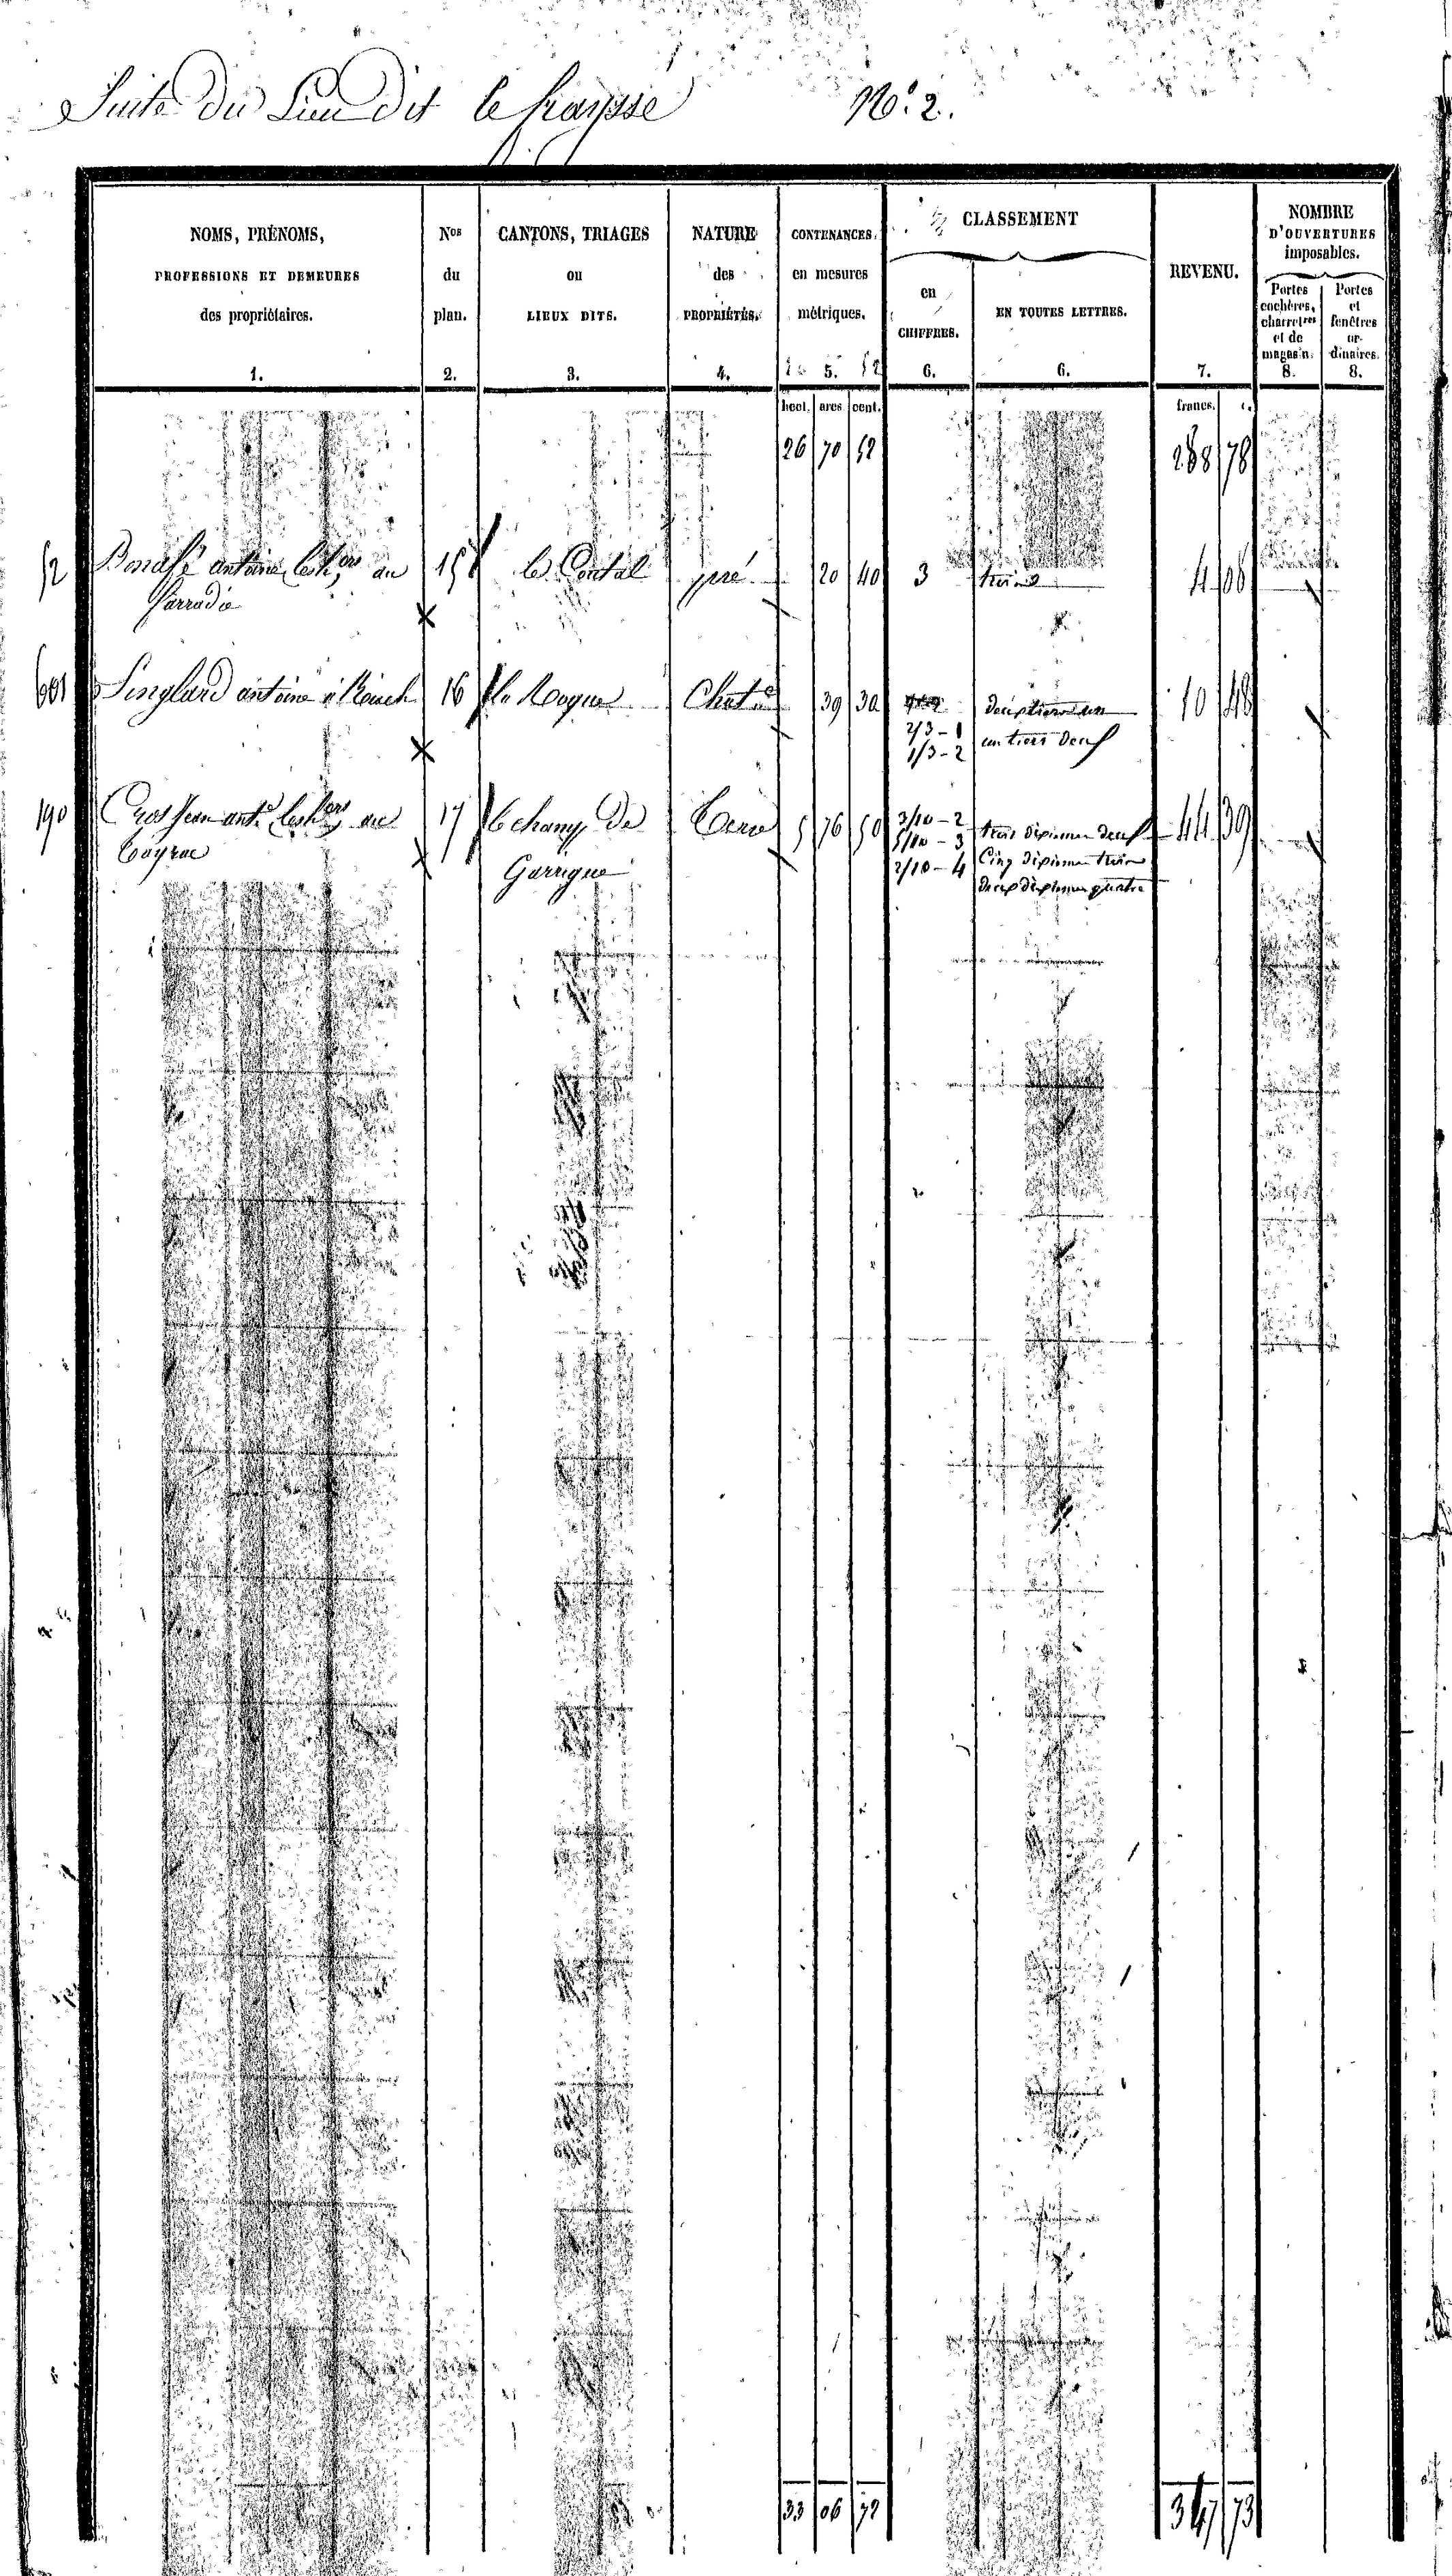 Suite du Lieu dit le fraysse No. 2.
NOMS, PRÉNOMS,
PROFESSIONS ET DEMEURES
des propriétaires.
1.
Nos
du
plan.
2.
CANTONS, TRIAGES
ou
LIEUX DITS.
3.
NATURE
des
PROPRIÉTÉS.
4.
CONTENANCES
en mesures
métriques.
5.
CLASSEMENT
en
CHIFFRES.
6.
EN TOUTES LETTRES.
6.
REVENU.
7.
NOMBRE
D'OUVERTURES
imposables.
Portes
cochères,
charretres
et de
magasin.
8.
Portes
et
fenêtres
or-
dinaires.
8.
hect. ares cent. francs. c.
26 70 52 288 78
52 antoine les hers au 15 le Contal pré 20 40 3 trois 4 08
601 Singlard antoine à 16 la Roque Chatre 39 30 10 48
2/3 - 1 deux tiers un
1/3 - 2 un tiers deux
190 Cros Jean ante les hers au 17 le champ de Terre 5 76 50 3/10 - 2 trois dixiemes deux 44 39
Cayrac Garrigue 5/10 - 3 Cinq dixiemes trois
2/10 - 4 deux dixiemes quatre
33 06 72 347 73